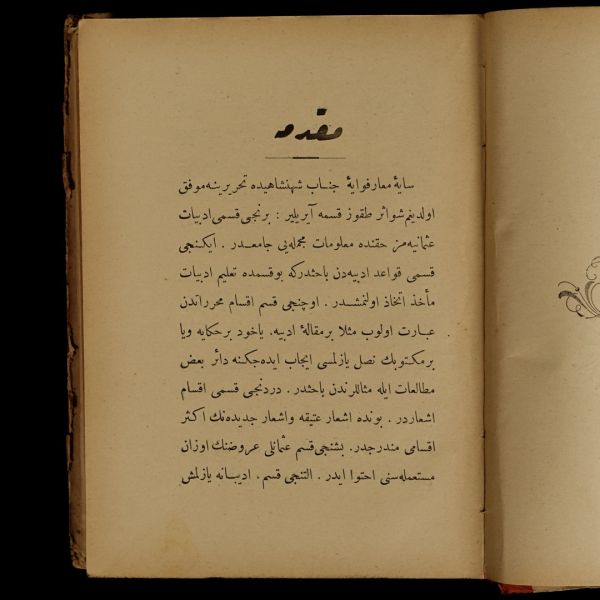 مقدمه
سایهٔ معارفوایهٔ جناب شهنشاهیده تحریرینه موفق
اولدیغم شو اثر طقوز قسمه آیریلیر : برنجی قسمی ادبیات
عثمانیه مز حقنده معلومات مجمله یی جامعدر . ایکنجی
قسمی قواعد ادبیه دن باحثدرکه بو قسمده تعلیم ادبیات
مأخذ اتخاذ اولنمشدر . اوچنجی قسم اقسام محرراتدن
عبارت اولوب مثلا بر مقالهٔ ادبیه، یاخود بر حکایه ویا
بر مکتوبك نصل یازلمسی ایجاب ایده جکنه دائر بعض
مطالعات ایله مثاللرندن باحثدر . دردنجی قسمی اقسام
اشعاردر . بونده اشعار عتیقه واشعار جدیده نك اکثر
اقسامی مندرجدر . بشنجی قسم عثمانلی عروضنك اوزان
مستعمله سنی احتوا ایدر . التنجی قسم، ادیبانه یازلمش